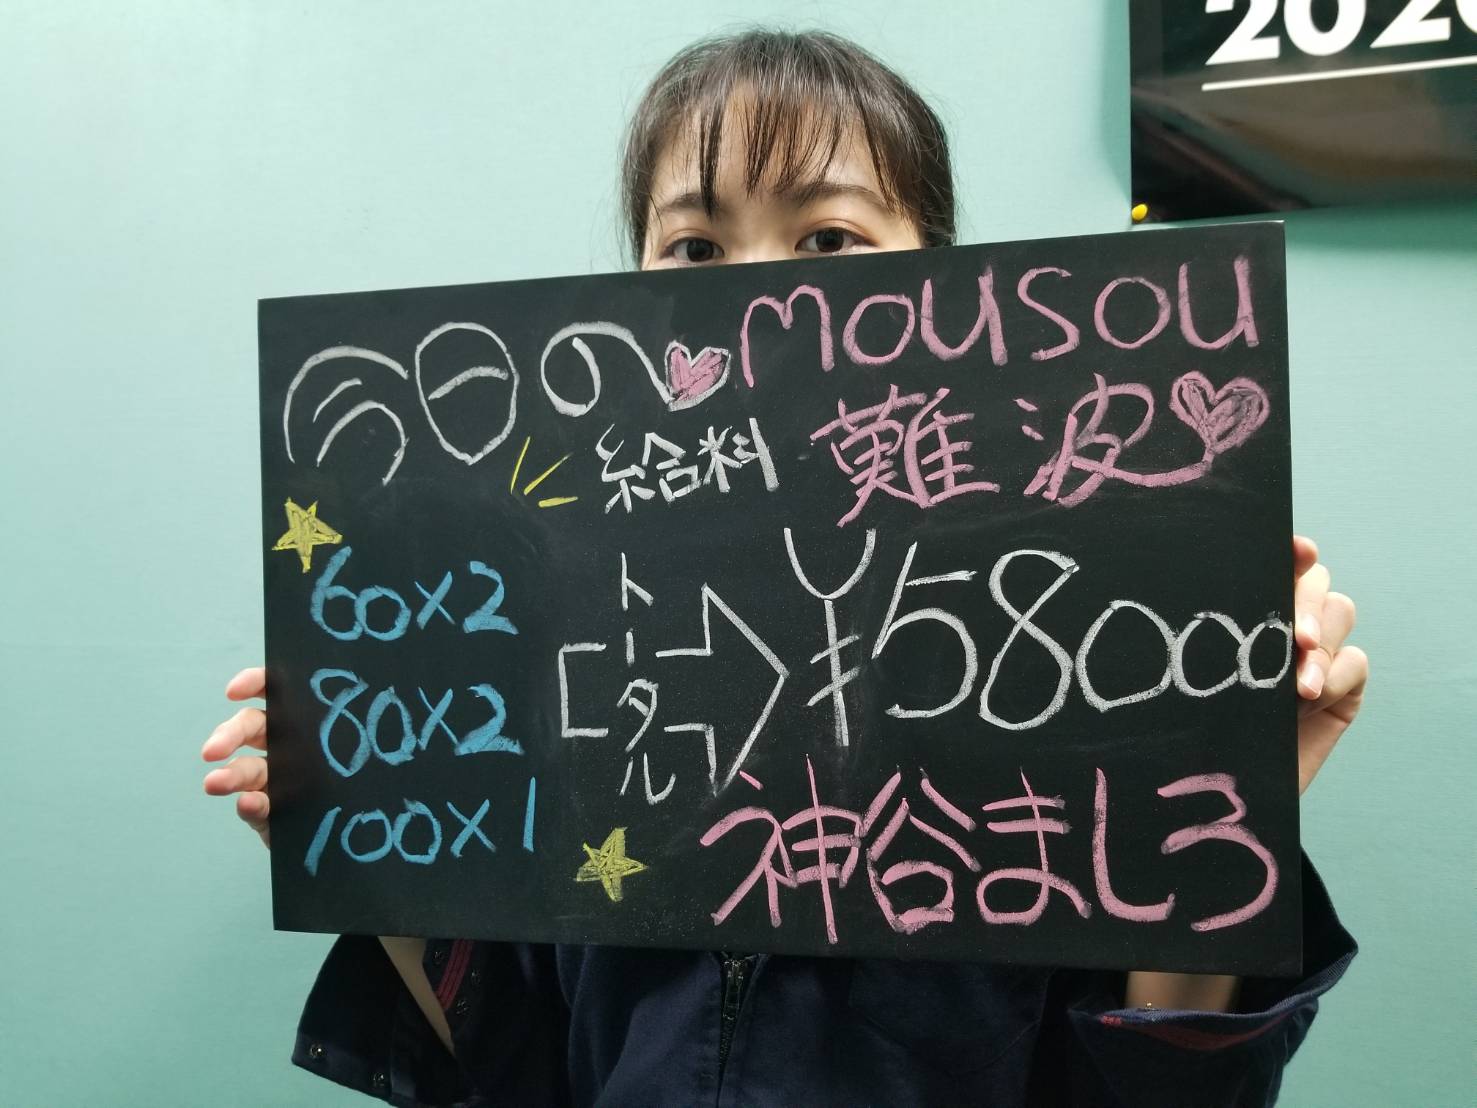 202
今日の
mousou
給料
難波
60×2
80×2
100×1
トータル
¥58000
神谷ましろ